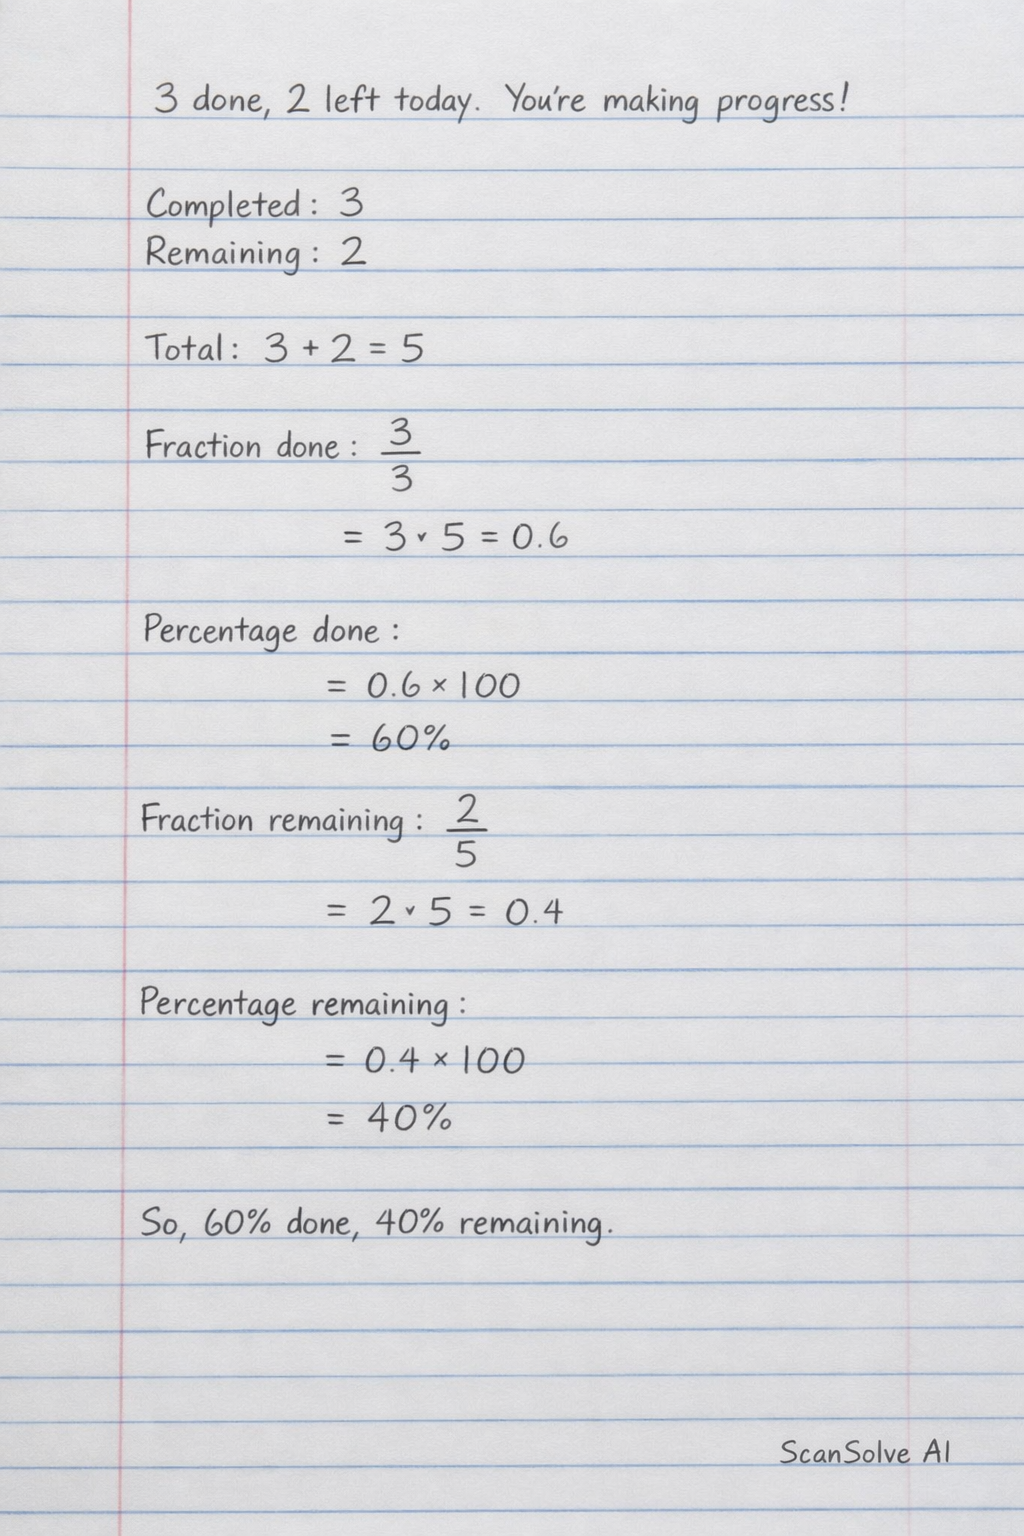 3 done, 2 left today. You're making progress!
Completed: 3
Remaining: 2
Total: 3 + 2 = 5
Fraction done: 3/3
= 3 ˅ 5 = 0.6
Percentage done:
= 0.6 × 100
= 60%
Fraction remaining: 2/5
= 2 ˅ 5 = 0.4
Percentage remaining:
= 0.4 × 100
= 40%
So, 60% done, 40% remaining.
ScanSolve AI